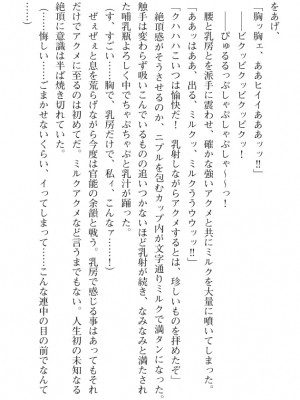 をあげ、
「胸ッ胸ェ、ああヒイイイああァッ!!」
――ビクッビクッビクッビクッ！
――びゅるるっぷじゃぷしゃぷしゃ～～っ！
腰と乳房とを派手に震わせ、確かな強いアクメと共にミルクを大量に噴いてしまった。
「うああっはああ、出る、ミルクッ、ミルクぅううウウッ!!」
「クハハハこいつは愉快だ！　乳射しながらアクメするとは、珍しいものを拝めたぞ」
絶頂感がそうさせるのか、ニプルを包むカップ内が文字通りミルクで満タンになった。
触手は変わらず吸いこんでいるものの追いつかないほど乳射が続き、なみなみと満たされ
た哺乳瓶よろしく中でちゃぷちゃぷと乳汁が踊った。
（す、すごい……胸で、乳房だけで、私ィ、こんなァっ……）
ぜぇぜぇと息を荒らげながら今度は官能の余韻と戦う。乳房で感じる事はあってもそれ
だけでアクメに至るのは初めてだ。ミルクアクメなど言うまでもない。人生初の未知なる
絶頂に意識は半ば焼き切れていた。
（……悔しい……ごまかせないくらい、イってしまって……こんな連中の目の前でなんて